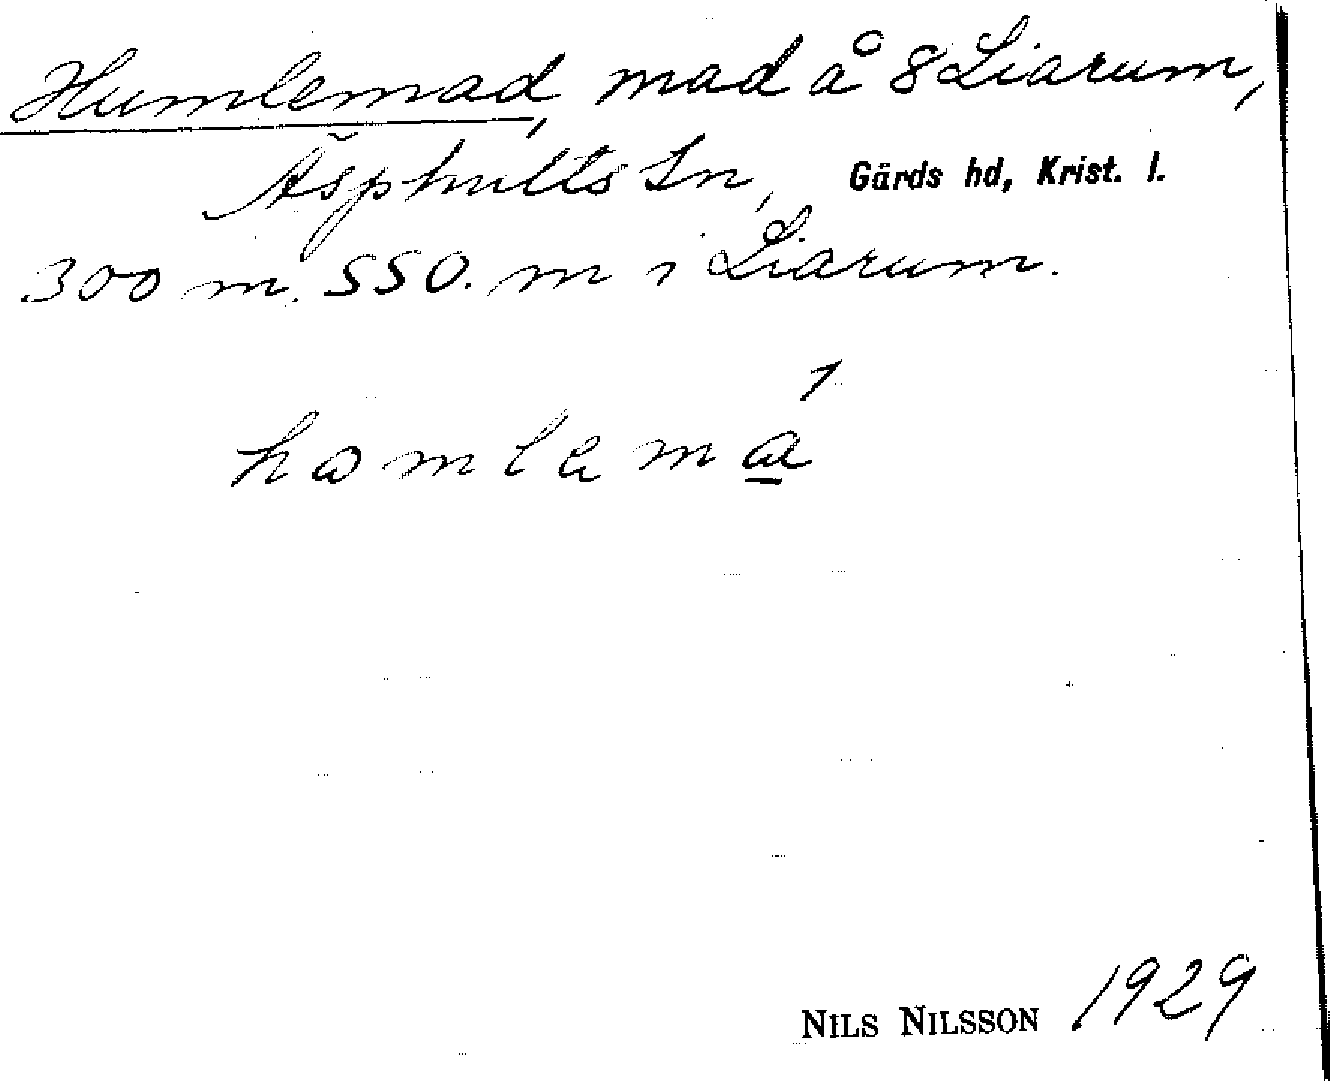 Humlemad, mad å 8 Liarum,
Äsphults sn, Gärds hd, Krist. l.
300 m. SSO. m i Liarum.
homlemá
NILS NILSSON 1929